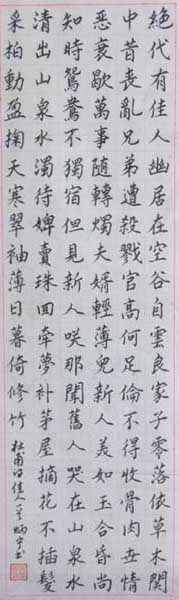 絕代有佳人幽居在空谷自雲良家子零落依草木關
中昔喪亂兄弟遭殺戮官高何足倫不得收骨肉世情
惡衰歇萬事隨轉燭夫婿輕薄兒新人美如玉合昏尚
知時鴛鴦不獨宿但見新人咲那聞舊人哭在山泉水
清出山泉水濁侍婢賣珠回牽蘿補茅屋摘花不插髮
采柏動盈掬天寒翠袖薄日暮倚修竹 杜甫詩佳人